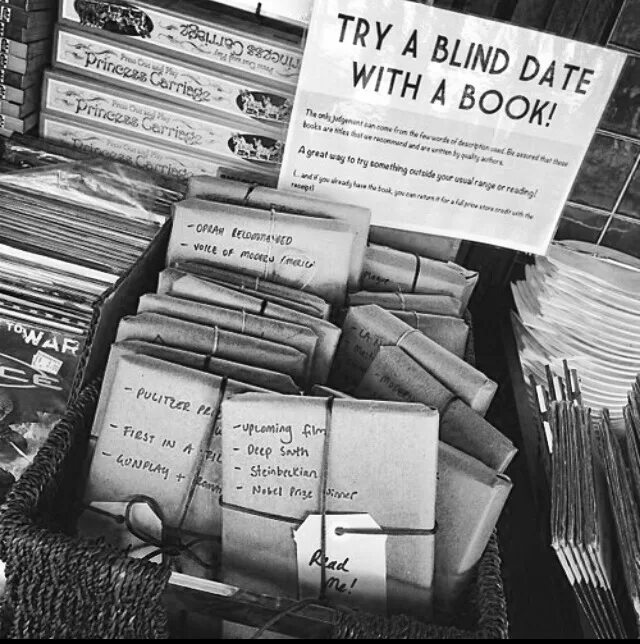 Princess Carriage
Press Out and Play
Princess Carriage
Press Out and Play
Princess Carriage
Press Out and Play
Princess Carriage
TRY A BLIND DATE
WITH A BOOK!
The only judgement can come from the few words of description used. Be assured that these
books are titles that we recommend and are written by quality authors.
A great way to try something outside your usual range or reading!
(...and if you already have the book, you can return it for a full price store credit with the
receipt)
- OPRAH RECOMMENDED
- VOICE OF MODERN AMERICA
TO WAR
- PULITZER PR
- FIRST IN A
- GUNPLAY +
- upcoming film
- Deep South
- Steinbeckian
- Nobel Prize winner
Read
Me!